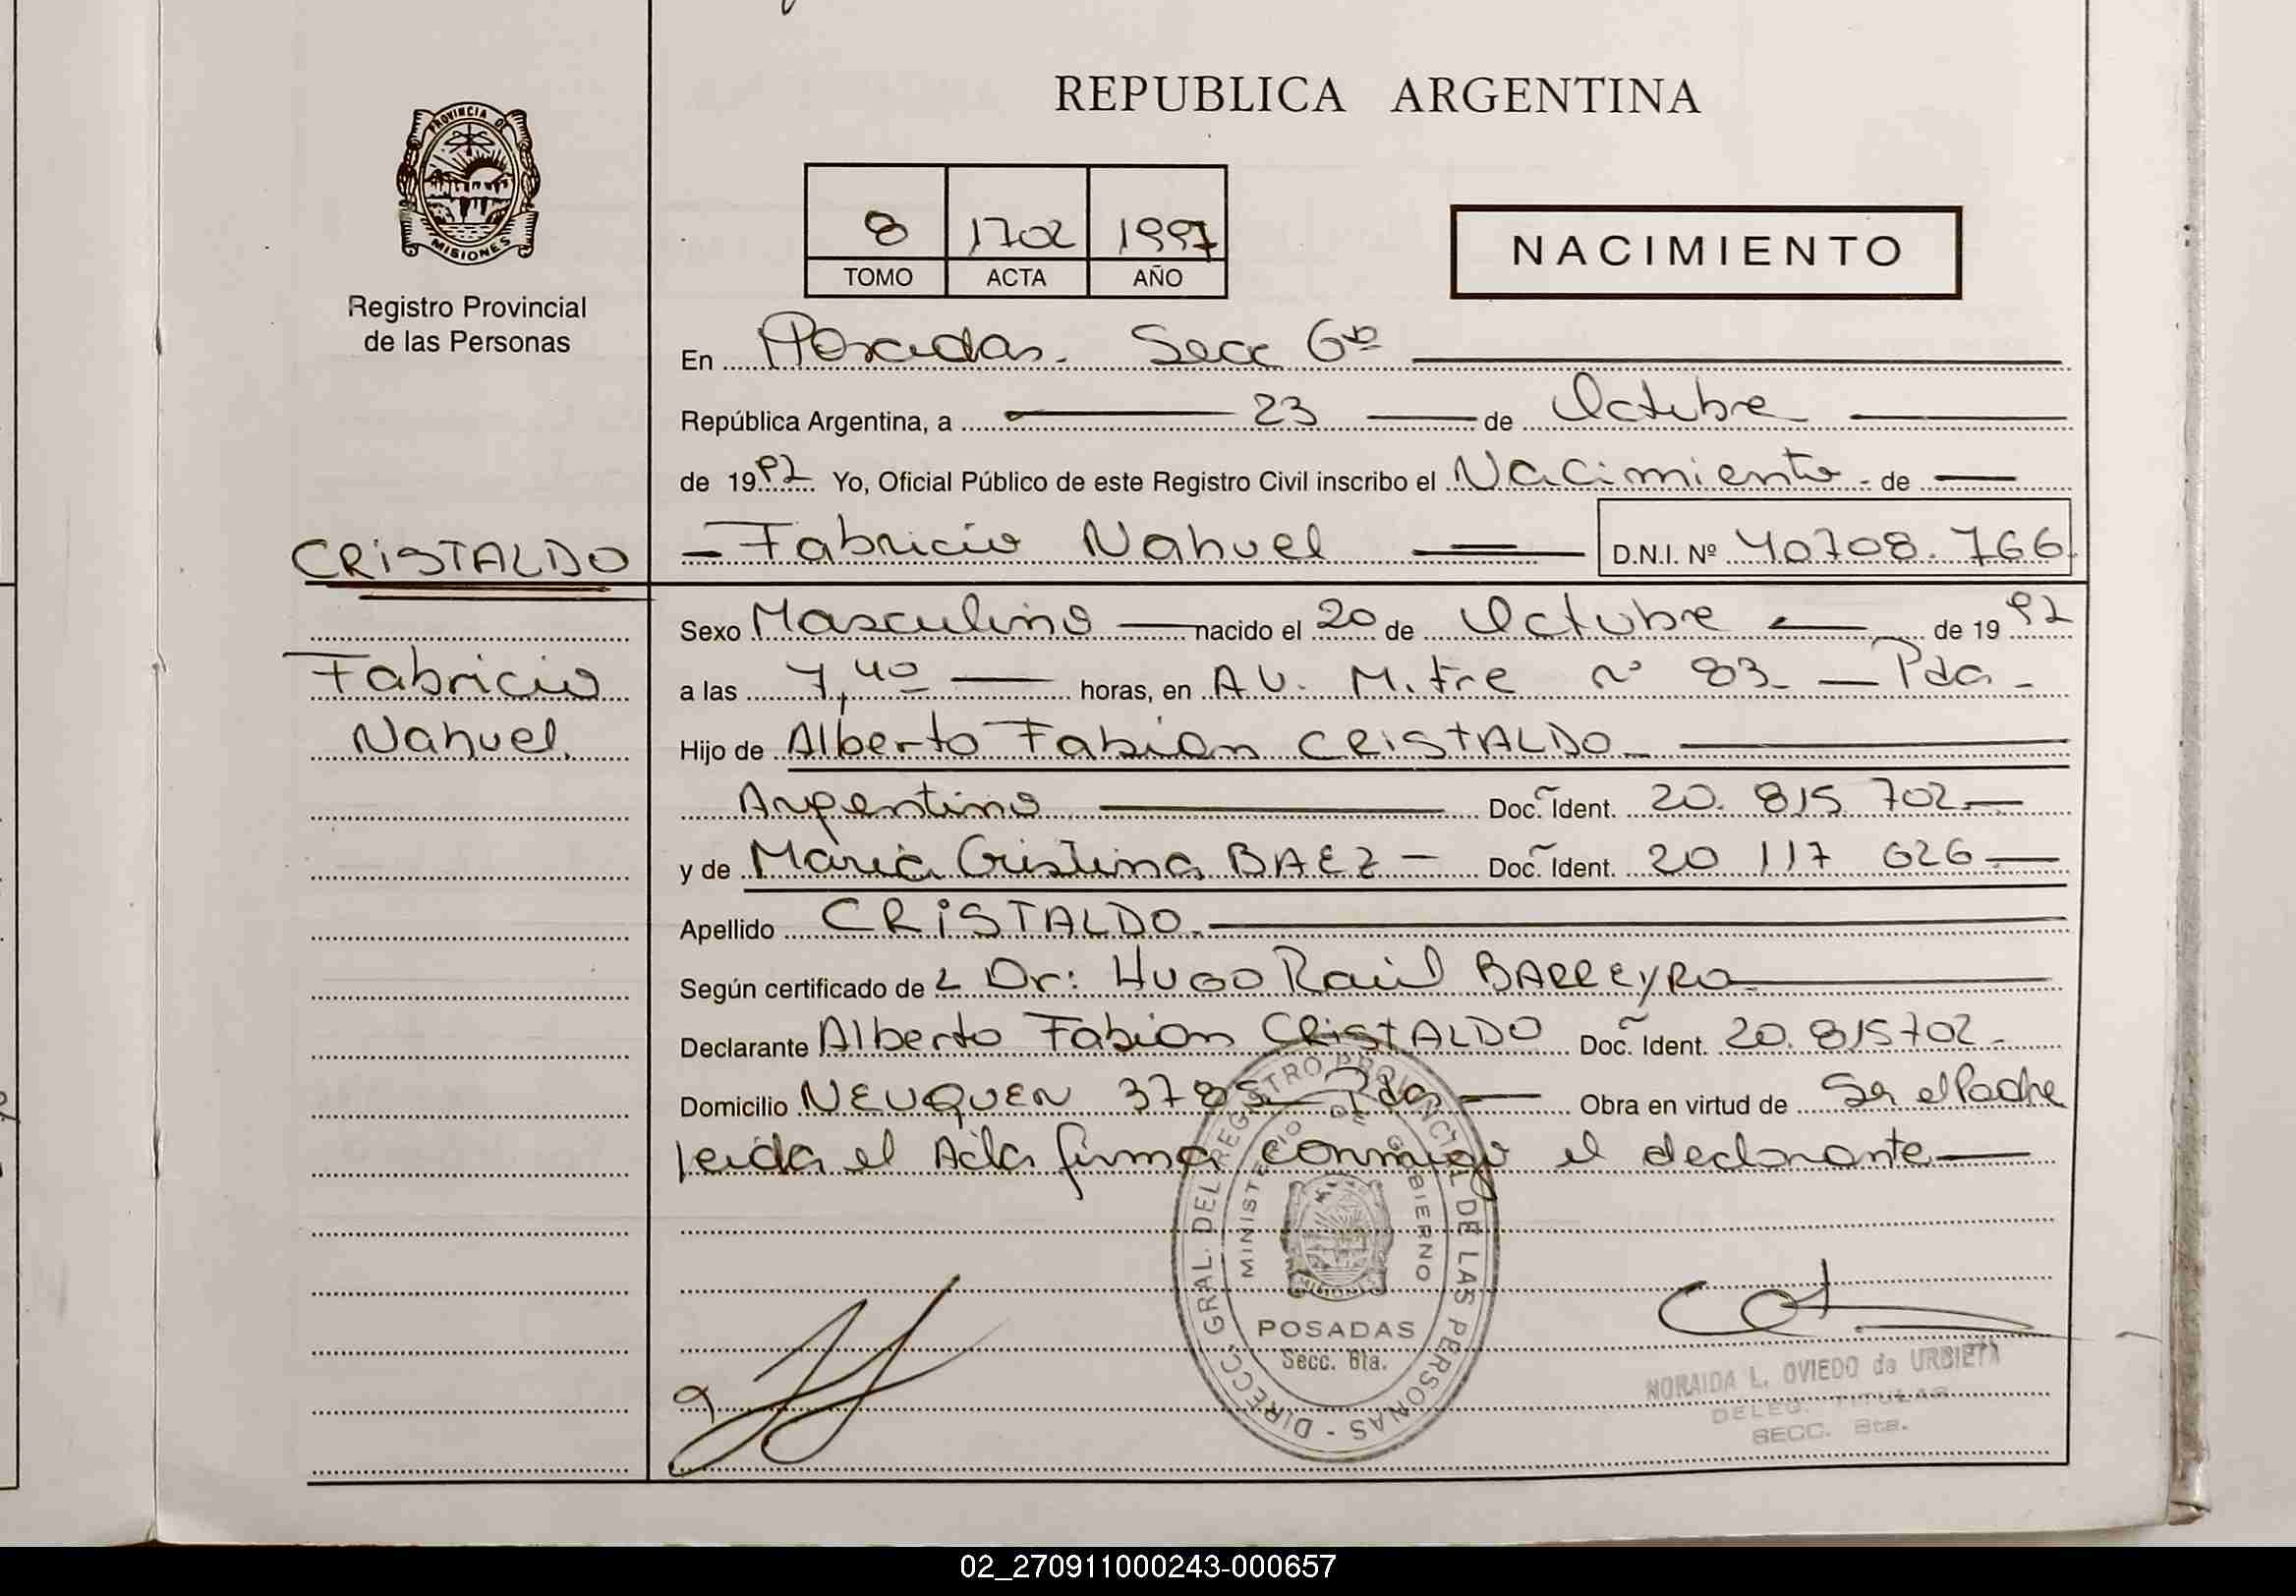 REPUBLICA ARGENTINA
PROVINCIA DE
MISIONES
Registro Provincial
de las Personas
8 1702 1997
TOMO ACTA AÑO
NACIMIENTO
En Posadas. Secc 6ta
República Argentina, a 23 de Octubre
de 1997 Yo, Oficial Público de este Registro Civil inscribo el Nacimiento - de
CRISTALDO
Fabricio
Nahuel.
- Fabricio Nahuel D.N.I. Nº 40708.766
Sexo Masculino nacido el 20 de Octubre de 1997
a las 7,40 horas, en AV. Mitre nº 83 - Pdas -
Hijo de Alberto Fabian CRISTALDO
Argentino Doc. Ident. 20.815.702
y de Maria Cristina BAEZ - Doc. Ident. 20 117 626
Apellido CRISTALDO.
Según certificado de L Dr: HUGO Raúl BARREYRO
Declarante Alberto Fabian CRISTALDO Doc. Ident. 20.815702 -
Domicilio NEUQUEN 3785 Pdas Obra en virtud de Ser el Padre
leida el Acta firma conmigo el declarante
DIRECC. GRAL. DEL REGISTRO PROVINCIAL DE LAS PERSONAS -
MINISTERIO DE GOBIERNO
MISIONES
POSADAS
Secc. 6ta.
NORAIDA L. OVIEDO de URBIETA
DELEG. TITULAR
SECC. 6ta.
02_270911000243-000657